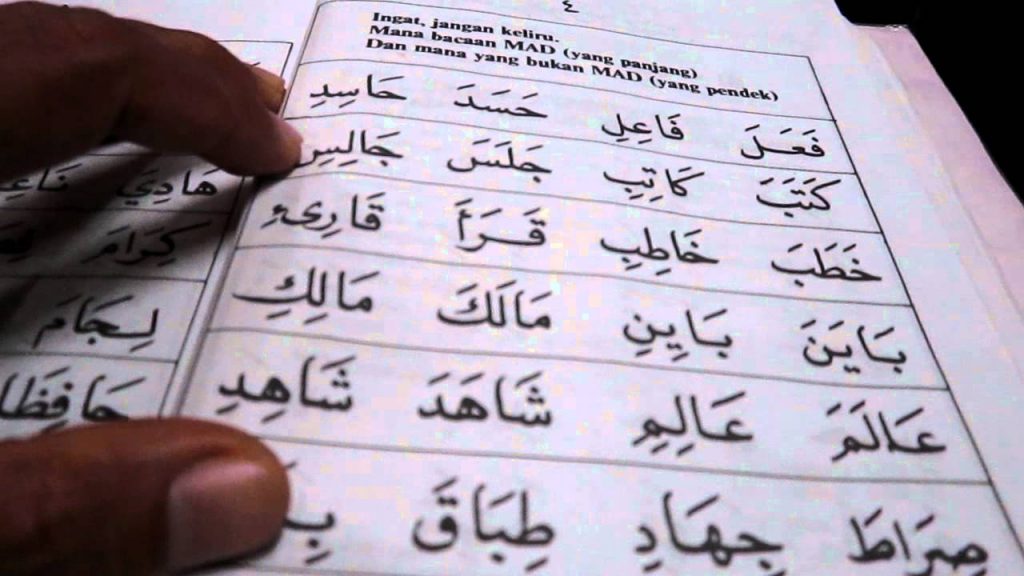 ٤
Ingat, jangan keliru.
Mana bacaan MAD (yang panjang)
Dan mana yang bukan MAD (yang pendek)
فَعَلَ فَاعِلِ حَسَدَ حَاسِدِ
كَتَبَ كَاتِبِ جَلَسَ جَالِسِ
خَطَبَ خَاطِبِ قَرَأَ قَارِىءِ
بَايَنَ بَايِنِ مَالَكَ مَالِكِ
عَالَمَ عَالِمِ شَاهَدَ شَاهِدِ
صِرَاطَ جِهَادِ طِبَاقَ
هَادِيَ
كِرَامَ
لِجَامَ
حَافِظَا